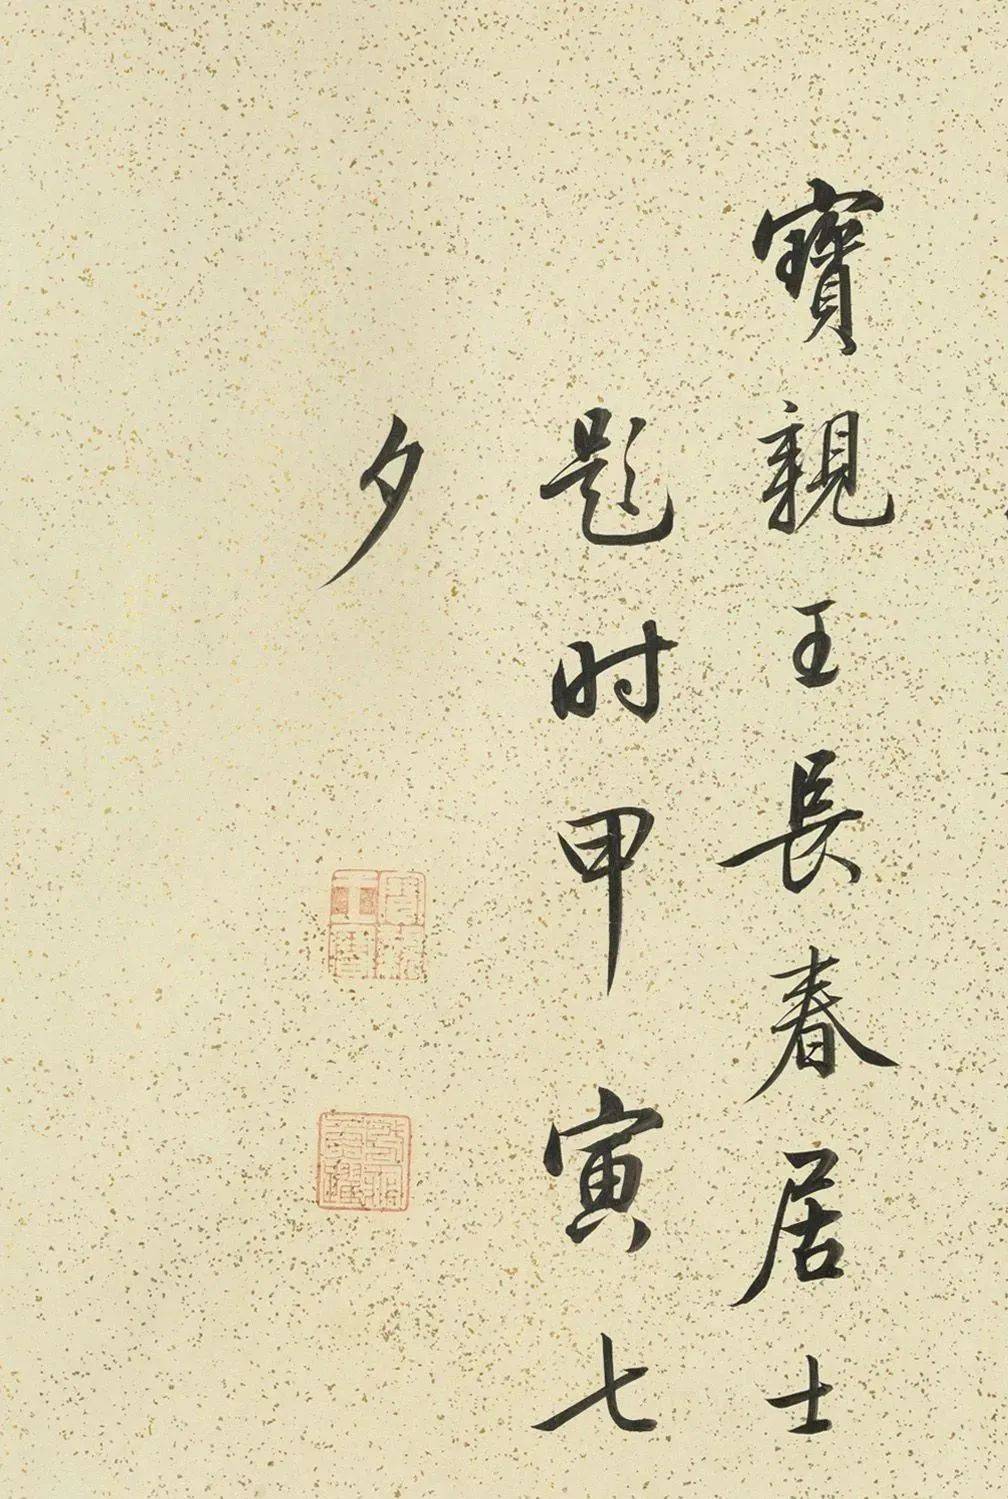 寶親王長春居士
題时甲寅七
夕